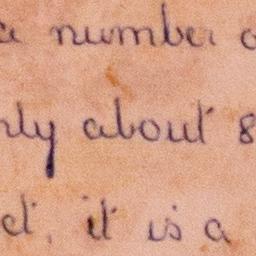 a number o
nly about 8
ct, it is a